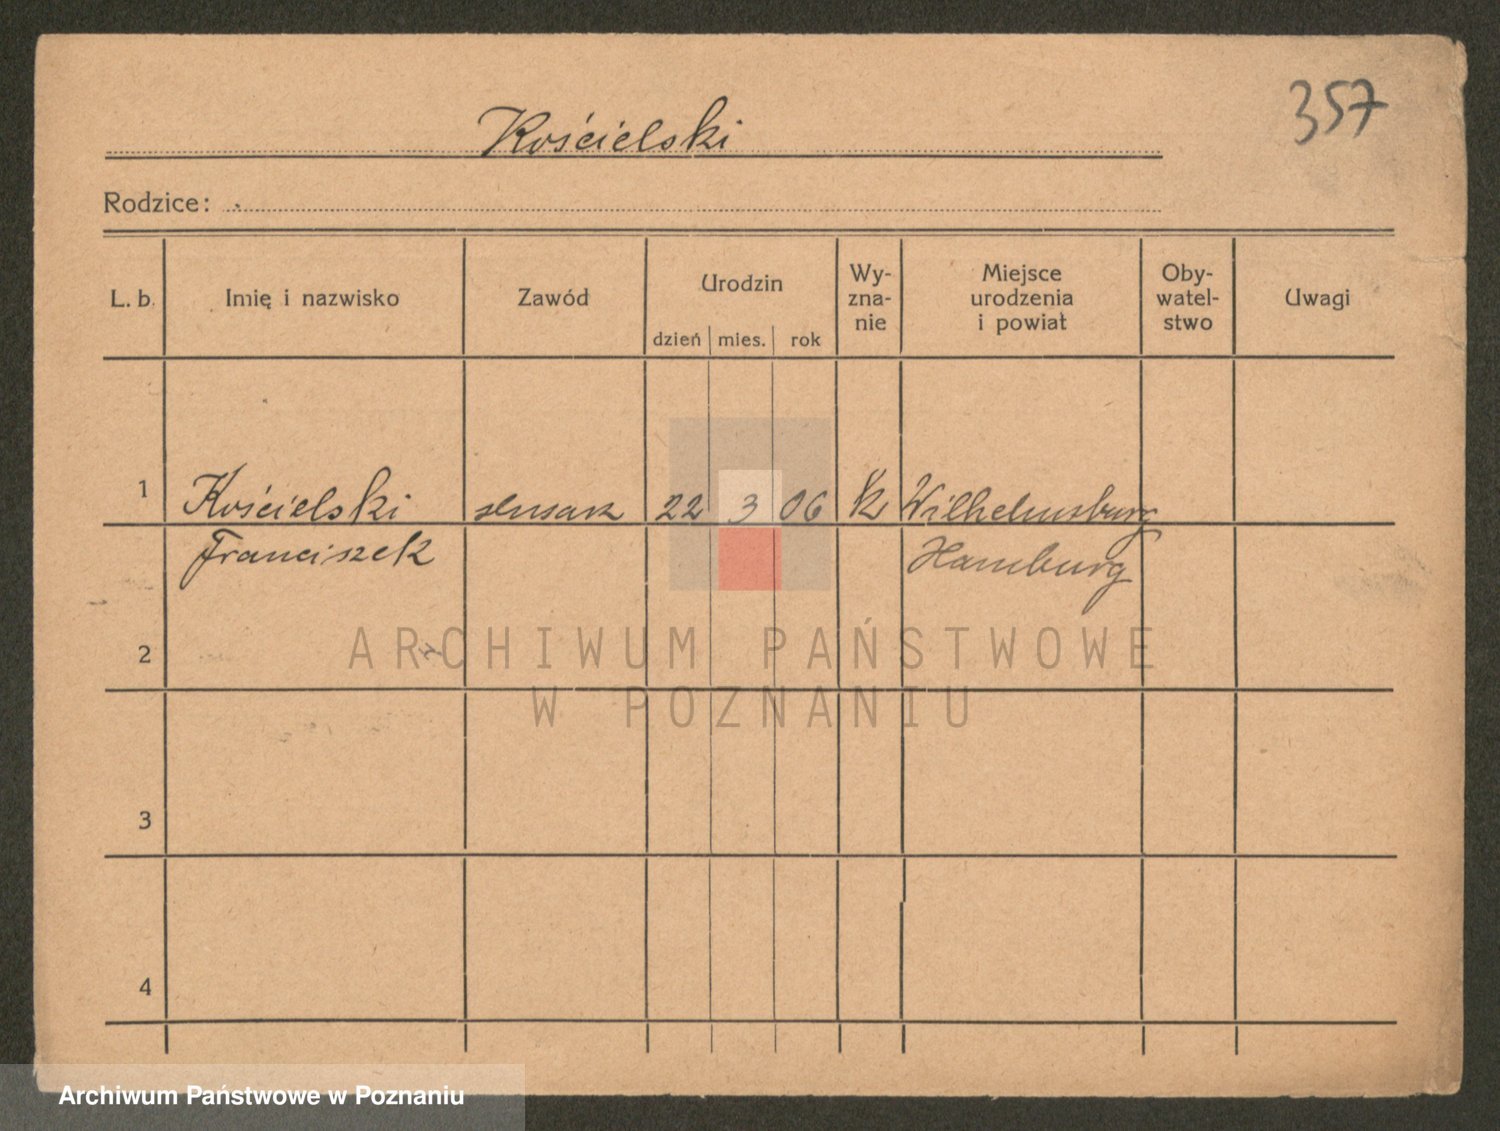 357
Kościelski
Rodzice:
L. b. Imię i nazwisko Zawód Urodzin dzień mies. rok Wy-zna-nie Miejsce urodzenia i powiat Oby-watel-stwo Uwagi
1 Kościelski ślusarz 22 3 06 k Wilhelmsburg
Franciszek Hamburg
2
3
4
ARCHIWUM PAŃSTWOWE
W POZNANIU
Archiwum Państwowe w Poznaniu